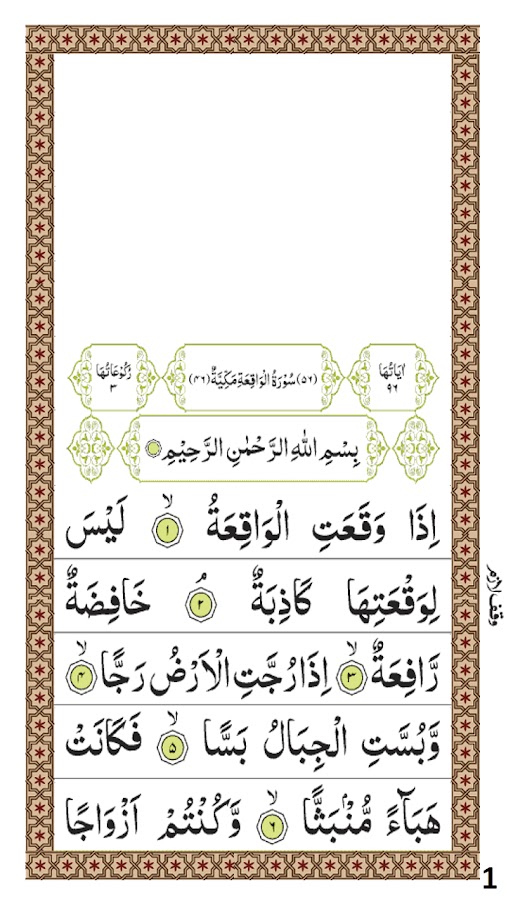 اٰيَاتُهَا ٩٦
(٥٦) سُوْرَةُ الْوَاقِعَةِ مَكِّيَّةٌ (٤٦)
رُكُوْعَاتُهَا ٣
بِسْمِ اللّٰهِ الرَّحْمٰنِ الرَّحِيْمِ
اِذَا وَقَعَتِ الْوَاقِعَةُ ۙ‏ ١ لَيْسَ
لِوَقْعَتِهَا كَاذِبَةٌ ۘ‏ ٢ خَافِضَةٌ
وقف لازم
رَّافِعَةٌ ۙ‏ ٣ اِذَا رُجَّتِ الْاَرْضُ رَجًّا ۙ‏ ٤
وَّبُسَّتِ الْجِبَالُ بَسًّا ۙ‏ ٥ فَكَانَتْ
هَبَآءً مُّنْۢبَثًّا ۙ‏ ٦ وَّكُنْتُمْ اَزْوَاجًا
1